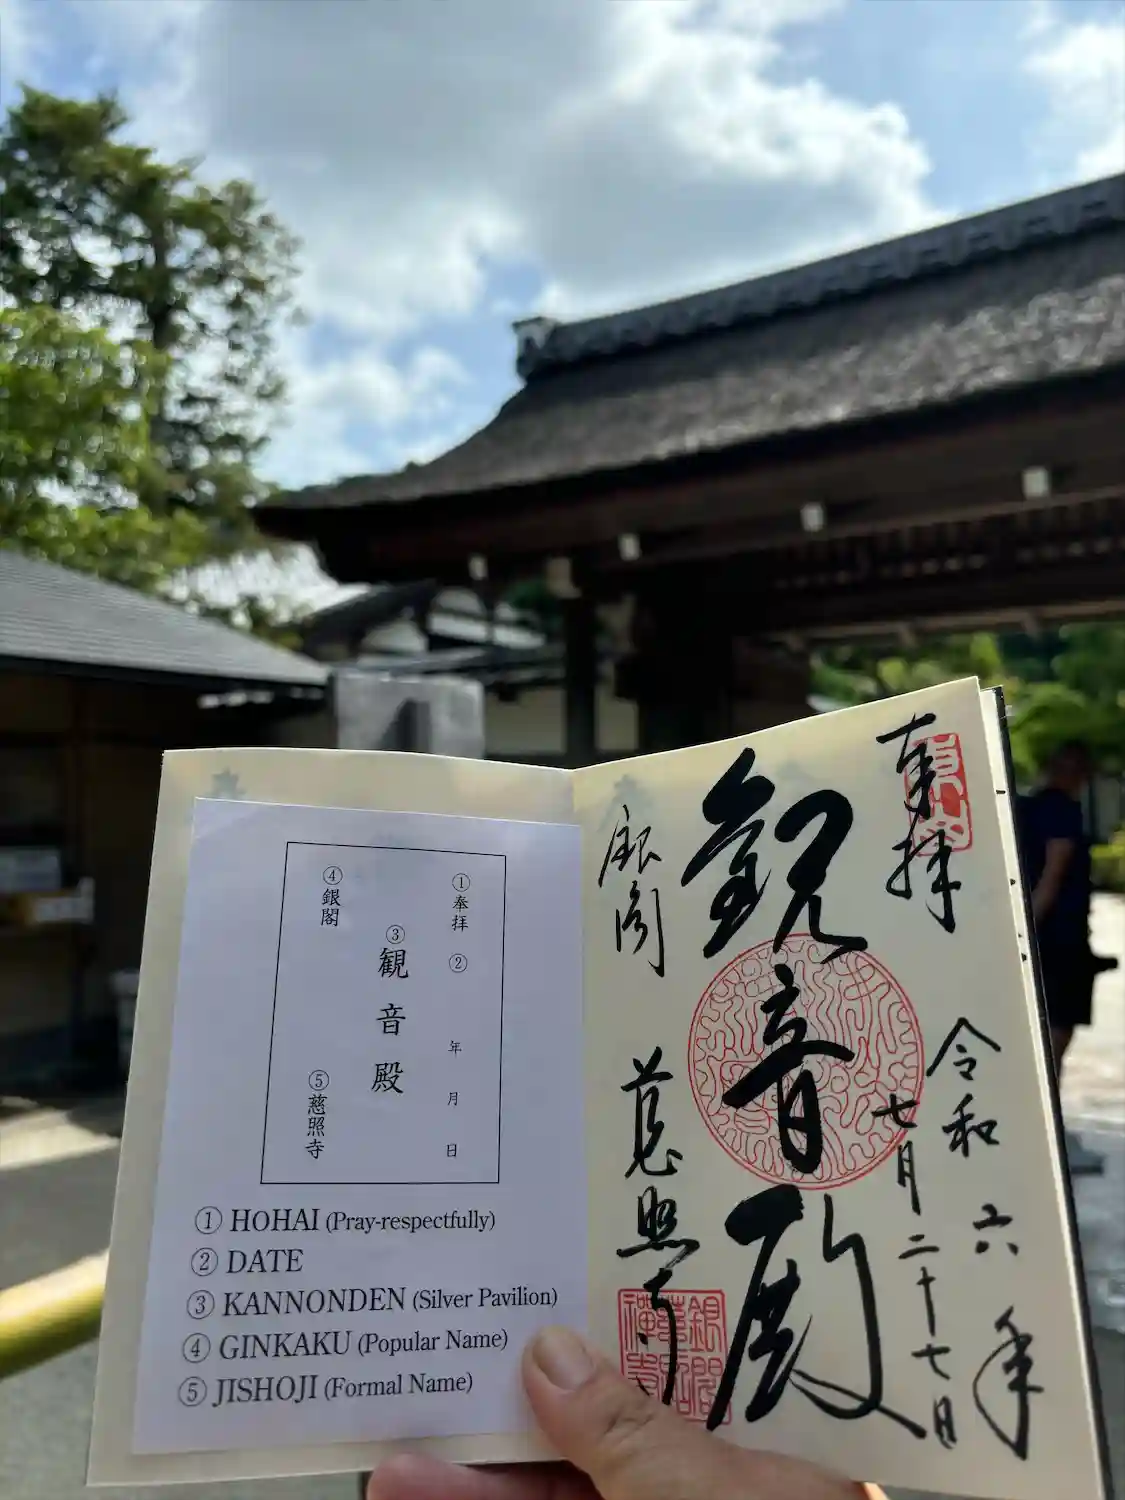 ①奉拝 ② 年 月 日
③観音殿
④銀閣 ⑤慈照寺
① HOHAI (Pray-respectfully)
② DATE
③ KANNONDEN (Silver Pavilion)
④ GINKAKU (Popular Name)
⑤ JISHOJI (Formal Name)
奉拝
令和六年
七月二十七日
観音殿
銀閣 慈照寺